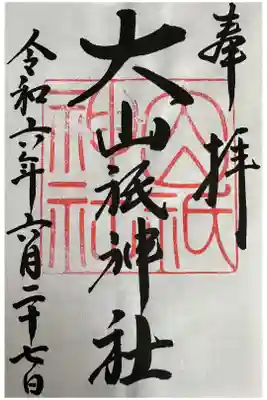 奉拝
大山祇神社
令和六年六月二十七日
大山祇神社